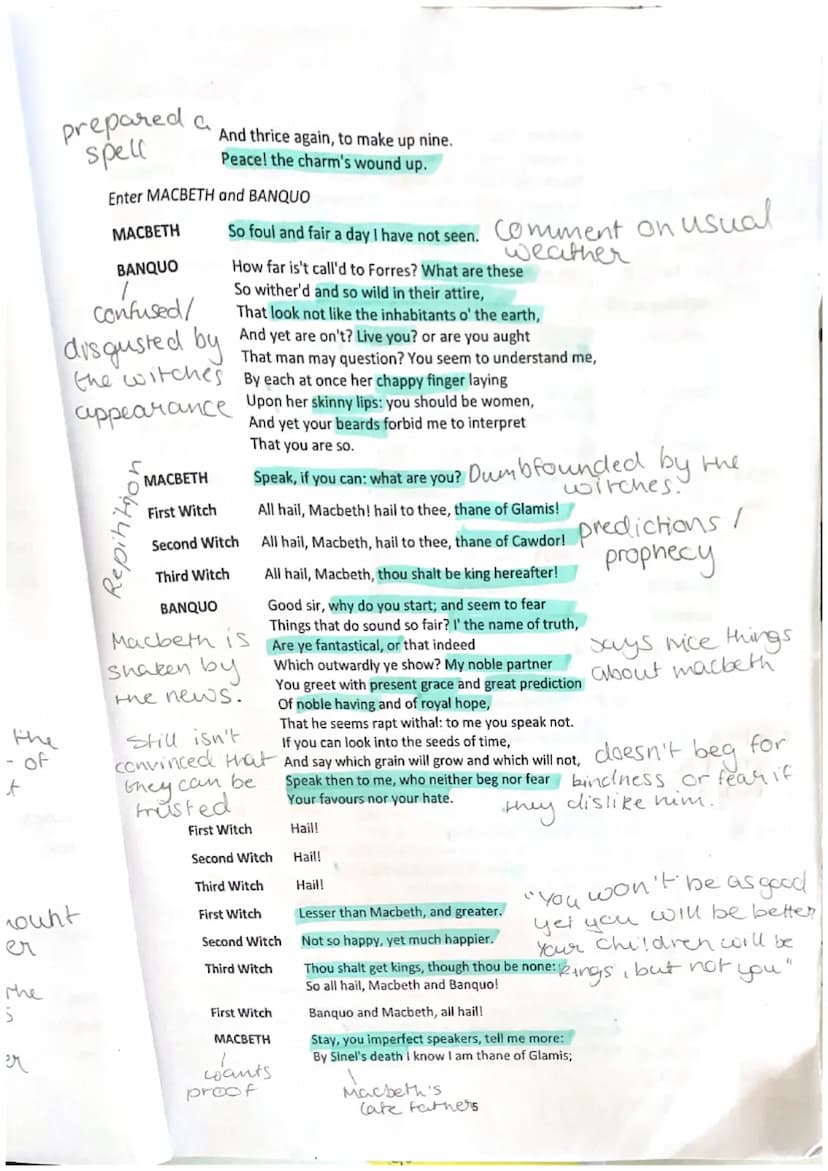 prepared a
spell
And thrice again, to make up nine.
Peace! the charm's wound up.
Enter MACBETH and BANQUO
MACBETH So foul and fair a day I have not seen.
comment on usual
weather
BANQUO How far is't call'd to Forres? What are these
So wither'd and so wild in their attire,
That look not like the inhabitants o' the earth,
And yet are on't? Live you? or are you aught
That man may question? You seem to understand me,
By each at once her chappy finger laying
Upon her skinny lips: you should be women,
And yet your beards forbid me to interpret
That you are so.
confused/
disgusted by
the witches
appearance
MACBETH Speak, if you can: what are you?
Dumbfounded by the
witches.
Repitition
First Witch All hail, Macbeth! hail to thee, thane of Glamis!
Second Witch All hail, Macbeth, hail to thee, thane of Cawdor!
Third Witch All hail, Macbeth, thou shalt be king hereafter!
predictions /
prophecy
BANQUO Good sir, why do you start; and seem to fear
Things that do sound so fair? I' the name of truth,
Are ye fantastical, or that indeed
Which outwardly ye show? My noble partner
You greet with present grace and great prediction
Of noble having and of royal hope,
That he seems rapt withal: to me you speak not.
If you can look into the seeds of time,
And say which grain will grow and which will not,
Speak then to me, who neither beg nor fear
Your favours nor your hate.
Macbeth is
shaken by
the news.
says nice things
about macbeth
Still isn't
convinced that
they can be
trusted
doesn't beg for
kindness or fear if
they dislike him.
the
- of
t
First Witch Hail!
Second Witch Hail!
Third Witch Hail!
First Witch Lesser than Macbeth, and greater.
Second Witch Not so happy, yet much happier.
Third Witch Thou shalt get kings, though thou be none:
So all hail, Macbeth and Banquo!
"You won't be as good
yet you will be better
Your children will be
kings, but not you"
er
the
s
er
First Witch Banquo and Macbeth, all hail!
MACBETH Stay, you imperfect speakers, tell me more:
By Sinel's death I know I am thane of Glamis;
wants
proof
Macbeth's
late fathers